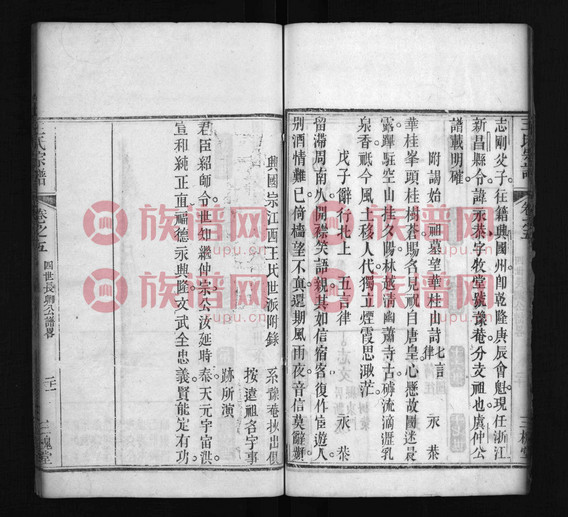 志剛父子在籍興國州卽乾隆庚辰會魁現任浙江
新昌縣令諱永恭字敬堂號豫菴分支祖也眞仲公
譜載明確
附謁始祖墓望華桂山詩七言律 永恭
華桂峯頭桂樹蒼賜名見說自唐皇心懸故國迷晨
露驆駐空山挂夕陽林邃清幽蕭寺古磚流滴瀝乳
泉香祇今風土移人代獨立煙霞思渺茫
戊子辭行北上五言律 永恭
留滯周南久開襟笑語親其如信宿客復作宦遊人
別酒情難已倚檣望不眞還期風雨夜音信莫辭頻
興國宗江西王氏世派附錄 系豫菴抄出俱
按遠祖名字事
跡所演
君臣紹師令世知繼仲宗公汝延時泰天元宇富洪
宣和純正直福德永興隆文武全忠義賢能定有功
王氏宗譜
卷之五
四世長卿公譜畧
三槐堂
族譜网
zupu.cn